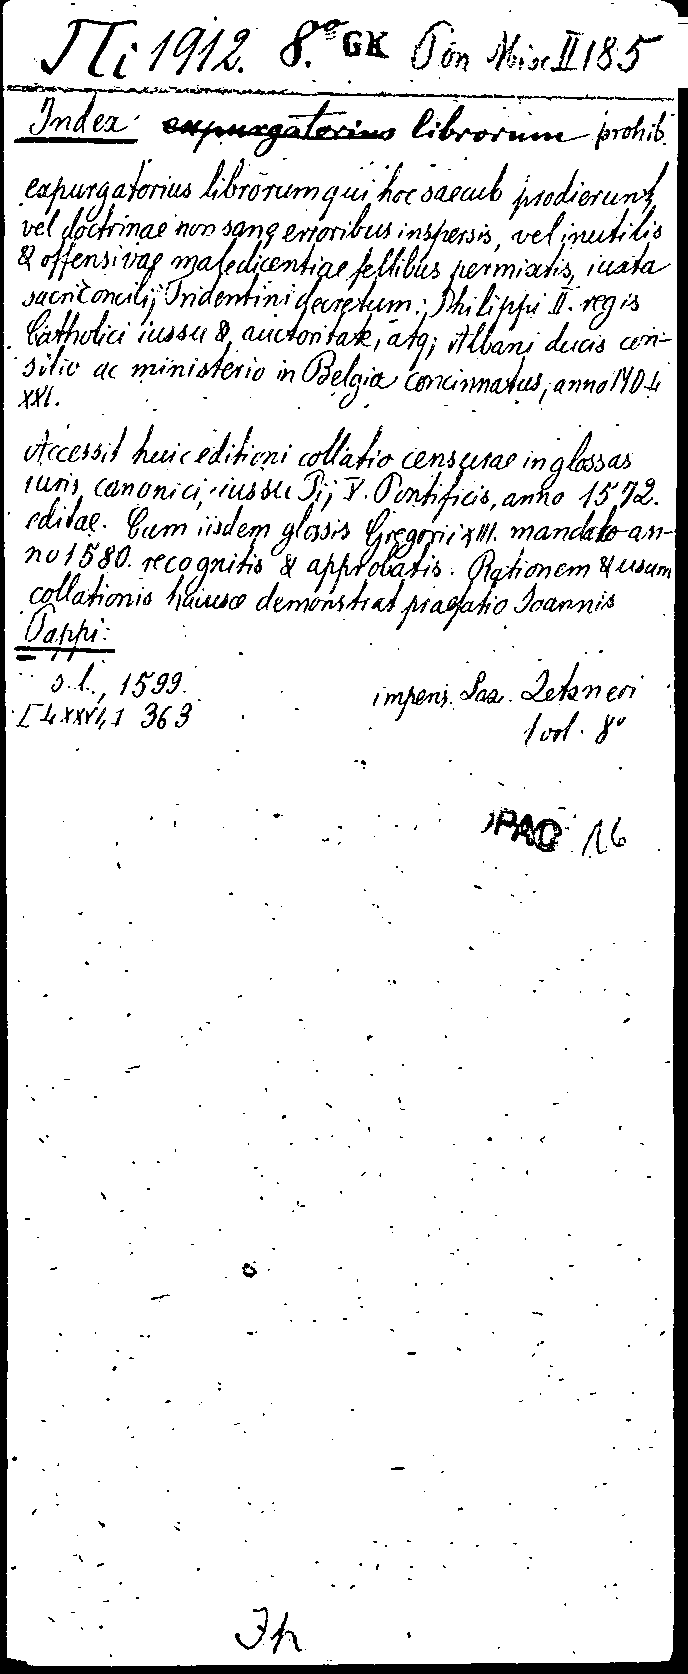 Πi 1912. 8.° GK Pon Misc II 185
Index: expurgatorius librorum prohib.
expurgatorius librorum qui hoc saeculo prodierunt,
vel doctrinae non sanae erroribus inspersis, vel inutilis
& offensivae maledicentiae fellibus permixtis, iuxta
sacri Concilij Tridentini decretum: Philippi II. regis
Catholici iussu & auctoritate, atq; Albani ducis con-
silio ac ministerio in Belgia concinnatus, anno MDL
XXI.
Accessit huic editioni collatio censurae in glossas
iuris canonici, iussu Pij V. Pontificis, anno 1572.
editae. Cum iisdem glossis Gregorii XIII. mandato an-
no 1580. recognitis & approbatis. Rationem & usum
collationis huiusce demonstrat praefatio Joannis
Pappi:
s.l., 1599. impens. Laz. Zetzneri
[LXXVI,] 363 1 vol. 8°
OPAC 16
Jh